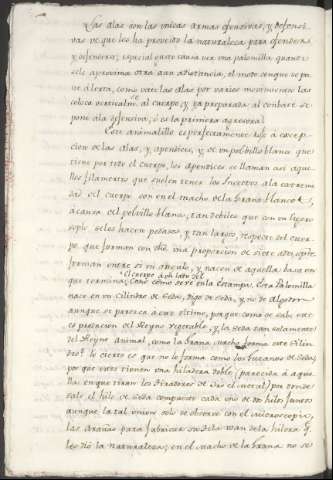 Las alas son las unicas armas ofensivas, y defensi-
vas de que les ha proveido la naturaleza para ofenderse
y defenderse; especial gusto causa ver una palomilla quando
se le aproxima otra aun a distancia, el modo con que se po
ne alerta, como vate las alas por varios movimientos las
coloca verticalmte al cuerpo, y ya preparada al combate se
pone a la defensiva, o es la primera agresora.
Este animalillo es perfectamente liso a excep-
cion de las alas, y apendices, y de un polvillo blanco que
tiene por todo el cuerpo, los apendices se llaman asi aque-
llos filamentos que suelen tener los Insectos a la extremi
dad del cuerpo son en el macho de la Grana blancos,
a causa del polvillo blanco, tan debiles que con un ligero
soplo se les hacen pedazos, y tan largos respecto del cuer
po que forman con éste una proporcion de siete a
forman entre si un angulo, y nacen de aquella basa en
que termina el cuerpo a un lado del
como se ve en la estampa. Esta Palomilla
nace en un cilindro de Seda, digo de Seda, y no de Algodon
aunque se parezca a este ultimo, porque como se sabe este
es produccion del Reyno vegetable, y la Seda tan solamente
del Reyno animal, como la Grana macho forma este cilin
dro? lo cierto es que no lo forma como los Gusanos de Seda;
por que estos tienen una hiladera doble (parecida a aque
llas en que tiran los tiradores de oro el metal) por donde
sale el hilo de seda compuesto cada uno de dos hilos juntos
aunque la tal union solo se observe con el microscopio,
las Arañas para fabricar su tela usan de la hilera q.
les dió la naturaleza; en el macho de la Grana no se